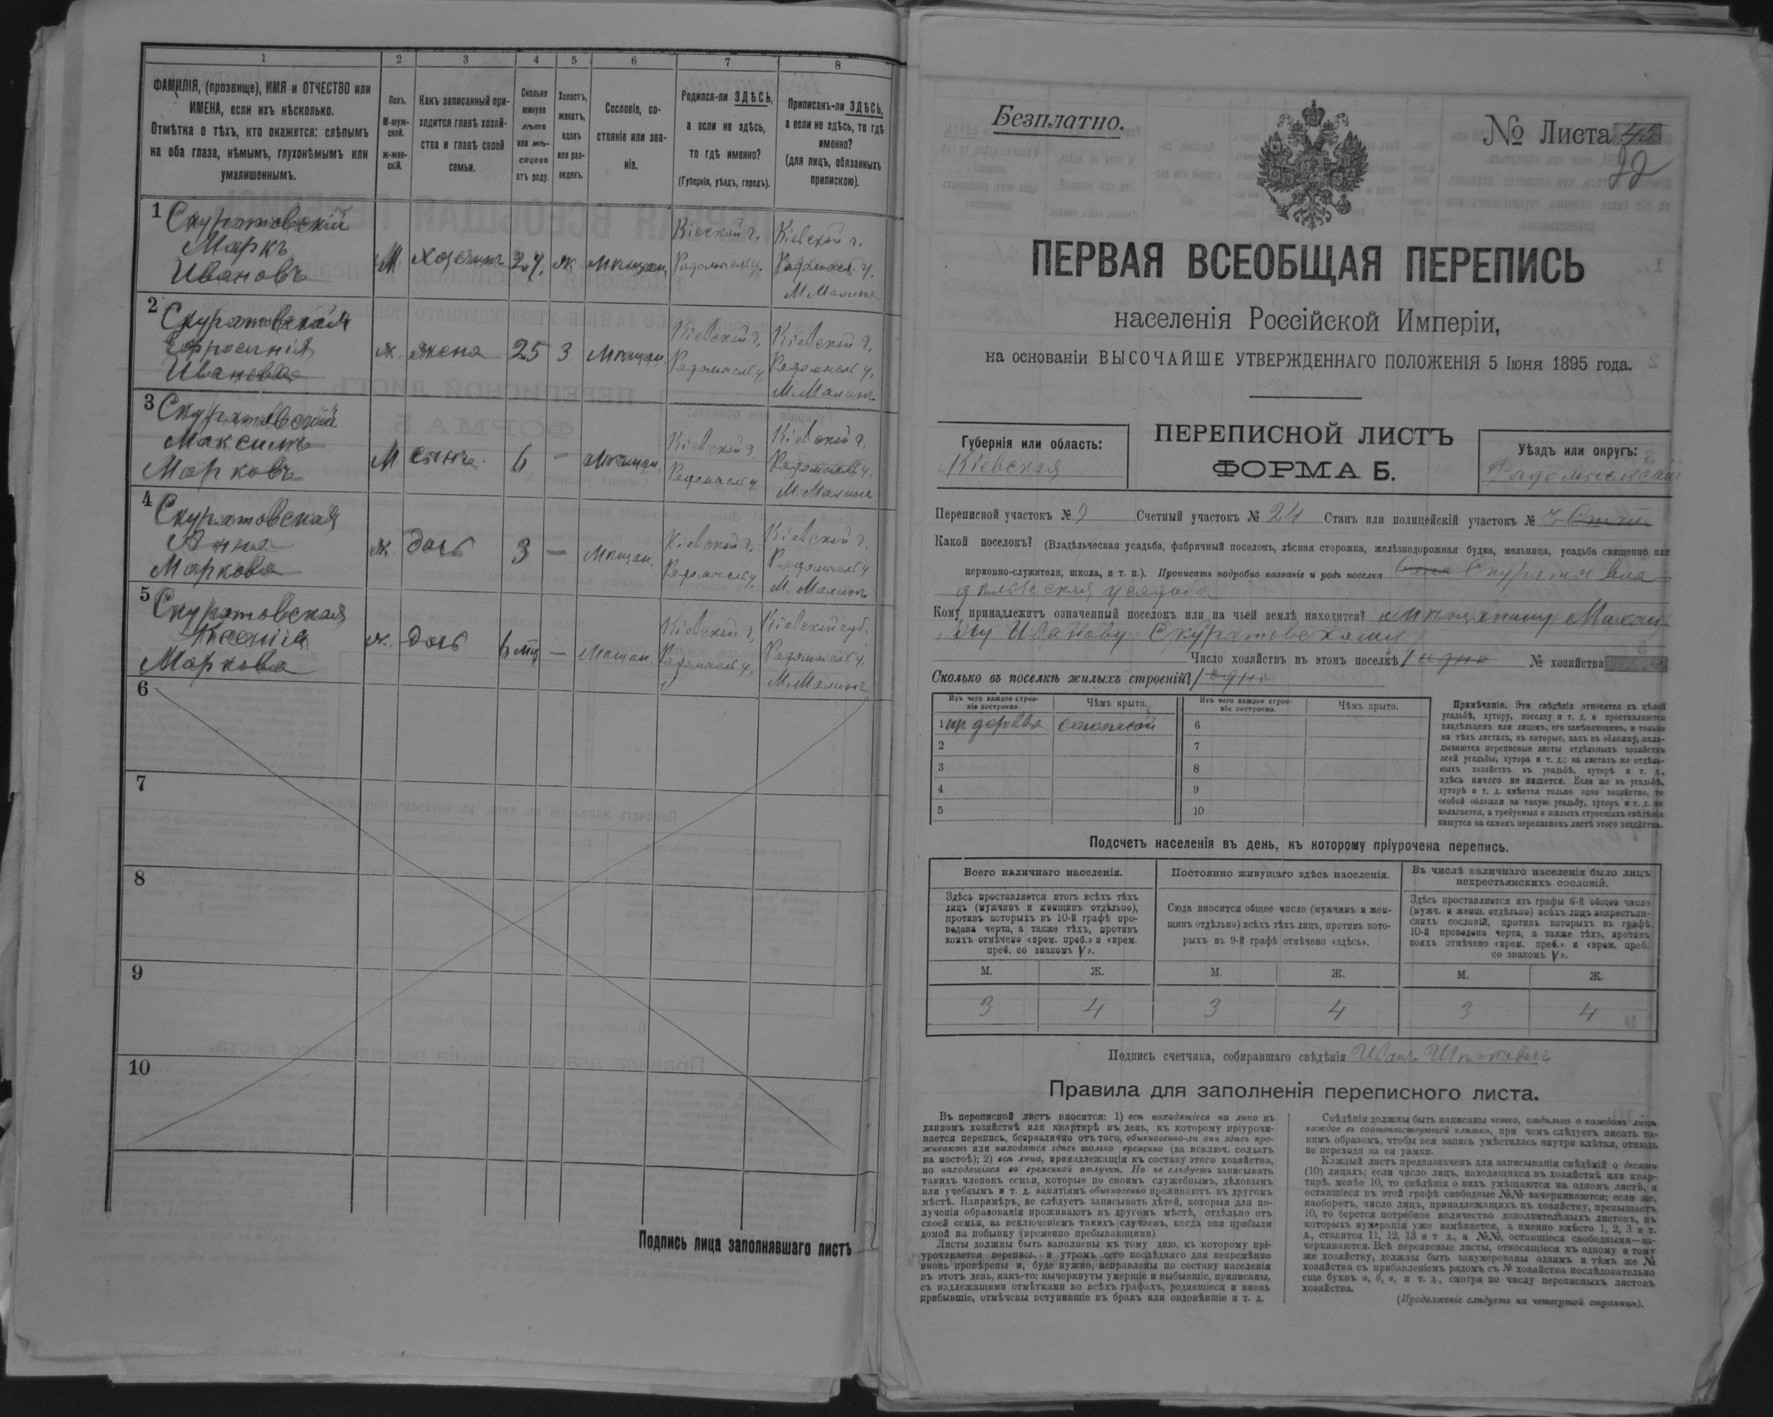 1 2 3 4 5 6 7 8
ФАМИЛІЯ, (прозвище), ИМЯ и ОТЧЕСТВО или
ИМЕНА, если ихъ нѣсколько.
Отмѣтка о тѣхъ, кто окажется: слѣпымъ
на оба глаза, нѣмымъ, глухонѣмымъ или
умалишеннымъ.
Полъ.
М-муж-
ской.
ж-жен-
скій.
Какъ записанный при-
ходится главѣ хозяй-
ства и главѣ своей
семьи.
Сколько
минуло
лѣтъ
или мѣ-
сяцевъ
отъ роду.
Холостъ,
женатъ,
вдовъ
или раз-
веденъ.
Сословіе, со-
стояніе или зва-
ніе.
Родился-ли ЗДѢСЬ,
а если не здѣсь,
то гдѣ именно?
(Губернія, уѣздъ, городъ).
Приписанъ-ли ЗДѢСЬ,
а если не здѣсь, то гдѣ
именно?
(для лицъ, обязанныхъ
припискою).
1 Скуратовскій
Маркъ
Ивановъ
М хозяинъ 27 ж мѣщан
Кіевской г.
Радомысл у.
Кіевской г.
Радомысл у.
М. Малинъ
2 Скуратовская
Ефросинія
Иванова
ж. жена 25 З мѣщан.
Кіевской г.
Радомысл у.
Кіевской г.
Радомысл у.
М. Малинъ
3 Скуратовскій
Максимъ
Марковъ
М сынъ. 6 — мѣщан.
Кіевской г
Радомысл у
Кіевской г.
Радомысл у.
М. Малинъ
4 Скуратовская
Анна
Маркова
ж. дочь 3 — мѣщан.
Кіевской г.
Радомысл у.
Кіевской г.
Радомысл у
М. Малинъ
5 Скуратовская
Ксенія
Маркова
ж. дочь 6 мц — мѣщан.
Кіевской г.
Радомысл у.
Кіевской губ.
Радомысл у.
М. Малинъ
6
7
8
9
10
Подпись лица заполнявшаго листъ
Безплатно.
№ Листа 42
22
ПЕРВАЯ ВСЕОБЩАЯ ПЕРЕПИСЬ
населенія Россійской Имперіи,
на основаніи ВЫСОЧАЙШЕ УТВЕРЖДЕННАГО ПОЛОЖЕНІЯ 5 Іюня 1895 года.
Губернія или область:
Кіевская
ПЕРЕПИСНОЙ ЛИСТЪ
ФОРМА Б.
Уѣздъ или округъ:
Радомысльскій
Переписной участокъ № 9 Счетный участокъ № 24 Станъ или полицейскій участокъ №
Какой поселокъ? (Владѣльческая усадьба, фабричный поселокъ, лѣсная сторожка, желѣзнодорожная будка, мельница, усадьба священно или
церковно-служителя, школа, и т. п.). Прописать подробно названіе и родъ поселка Скуратъ вла
дѣльческая усадьба
Кому принадлежитъ означенный поселокъ или на чьей землѣ находится? мѣщанину Михаи
лу Иванову Скуратовскому
Число хозяйствъ въ этомъ поселкѣ 1 одно № хозяйства
Сколько въ поселкѣ жилыхъ строеній? 1 одно
Изъ чего каждое строе-
ніе построено.
Чѣмъ крыто.
Изъ чего каждое строе-
ніе построено.
Чѣмъ крыто.
1 изъ дерева соломой 6
2 7
3 8
4 9
5 10
Примѣчаніе. Эти свѣдѣнія относятся къ цѣлой
усадьбѣ, хутору, поселку и т. д. и проставляются
владѣльцемъ или лицомъ, его замѣняющимъ, и только
на тѣхъ листахъ, въ которые, какъ въ обложку, вкла-
дываются переписные листы отдѣльныхъ хозяйствъ
всей усадьбы, хутора и т. д.; на листахъ же отдѣль-
ныхъ хозяйствъ въ усадьбѣ, хуторѣ и т. д.,
здѣсь ничего не пишется. Если же въ усадьбѣ,
хуторѣ и т. д. имѣется только одно хозяйство, то
особой обложки на такую усадьбу, хуторъ и т. д. не
полагается, а требуемыя о жилыхъ строеніяхъ свѣдѣнія
пишутся на самомъ переписномъ листѣ этого хозяйства.
Подсчетъ населенія въ день, къ которому пріурочена перепись.
Всего наличнаго населенія.
Здѣсь проставляется итогъ всѣхъ тѣхъ
лицъ (мужчинъ и женщинъ отдѣльно),
противъ которыхъ въ 10-й графѣ про-
ведена черта, а также тѣхъ, противъ
коихъ отмѣчено «врем. преб.» и «врем.
преб. со знакомъ V».
Постоянно живущаго здѣсь населенія.
Сюда вносится общее число (мужчинъ и жен-
щинъ отдѣльно) всѣхъ тѣхъ лицъ, противъ кото-
рыхъ въ 9-й графѣ отмѣчено «здѣсь».
Въ числѣ наличнаго населенія было лицъ
некрестьянскихъ сословій.
Здѣсь проставляется изъ графы 6-й общее число
(мужч. и женщ. отдѣльно) всѣхъ лицъ некрестьян-
скихъ сословій, противъ которыхъ въ графѣ
10-й проведена черта, а также тѣхъ, противъ
коихъ отмѣчено «врем. преб.» и «врем. преб.
со знакомъ V».
М. Ж. М. Ж. М. Ж.
3 4 3 4 3 4
Подпись счетчика, собиравшаго свѣдѣнія Иванъ
Правила для заполненія переписного листа.
Въ переписной листъ вносятся: 1) всѣ находящіеся на лицо въ
данномъ хозяйствѣ или квартирѣ въ день, къ которому пріурочи-
вается перепись, безразлично отъ того, обыкновенно-ли они здѣсь про-
живаютъ или находятся здѣсь только временно (за исключ. солдатъ
на постоѣ); 2) всѣ лица, принадлежащія къ составу этого хозяйства,
но находящіяся во временной отлучкѣ. Но не слѣдуетъ записывать
такихъ членовъ семьи, которые по своимъ служебнымъ, дѣловымъ
или учебнымъ и т. д. занятіямъ обыкновенно проживаютъ въ другомъ
мѣстѣ. Напримѣръ, не слѣдуетъ записывать дѣтей, которыя для по-
лученія образованія проживаютъ въ другомъ мѣстѣ, отдѣльно отъ
своей семьи, за исключеніемъ такихъ случаевъ, когда они прибыли
домой на побывку (временно пребывающими).
Листы должны быть заполнены къ тому дню, къ которому прі-
урочивается перепись, и утромъ сего послѣдняго дня непремѣнно
вновь провѣрены и, буде нужно, исправлены по составу населенія
въ этотъ день, какъ-то: вычеркнуты умершіе и выбывшіе, приписаны,
съ надлежащими отмѣтками во всѣхъ графахъ, родившіеся и вновь
прибывшіе, отмѣчены вступившіе въ бракъ или овдовѣвшіе и т. д.
Свѣдѣнія должны быть написаны четко, отдѣльно о каждомъ лицѣ
каждое въ соотвѣтствующей клѣткѣ, при чемъ слѣдуетъ писать та-
кимъ образомъ, чтобы вся запись умѣстилась внутри клѣтки, отнюдь
не переходя за ея рамки.
Каждый листъ предназначенъ для записыванія свѣдѣній о десяти
(10) лицахъ; если число лицъ, находящихся въ хозяйствѣ или квар-
тирѣ, менѣе 10, то свѣдѣнія о нихъ умѣщаются на одномъ листѣ, а
оставшіеся въ этой графѣ свободные №№ зачеркиваются; если же,
наоборотъ, число лицъ, принадлежащихъ къ хозяйству, превышаетъ
10, то берется потребное количество дополнительныхъ листовъ, въ
которыхъ нумерація уже измѣняется, а именно вмѣсто 1, 2, 3 и т.
д., ставится 11, 12, 13 и т. д., а №№, оставшіеся свободными—за-
черкиваются. Всѣ переписные листы, относящіеся къ одному и тому
же хозяйству, должны быть занумерованы однимъ и тѣмъ же №
хозяйства съ прибавленіемъ рядомъ съ № хозяйства послѣдовательно
еще буквъ а, б, в, и т. д., смотря по числу переписныхъ листовъ
хозяйства.
(Продолженіе слѣдуетъ на четвертой страницѣ).